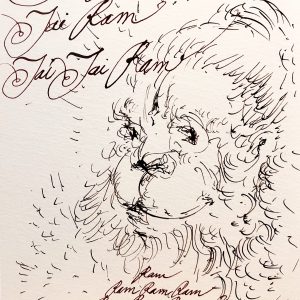 Jai Ram
Jai Jai Ram
Ram
Ram Ram Ram